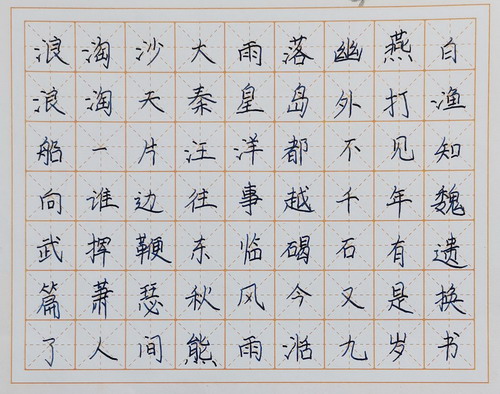 浪淘沙大雨落幽燕白
浪淘天秦皇岛外打渔
船一片汪洋都不见知
向谁边往事越千年魏
武挥鞭东临碣石有遗
篇萧瑟秋风今又是换
了人间熊雨湉九岁书